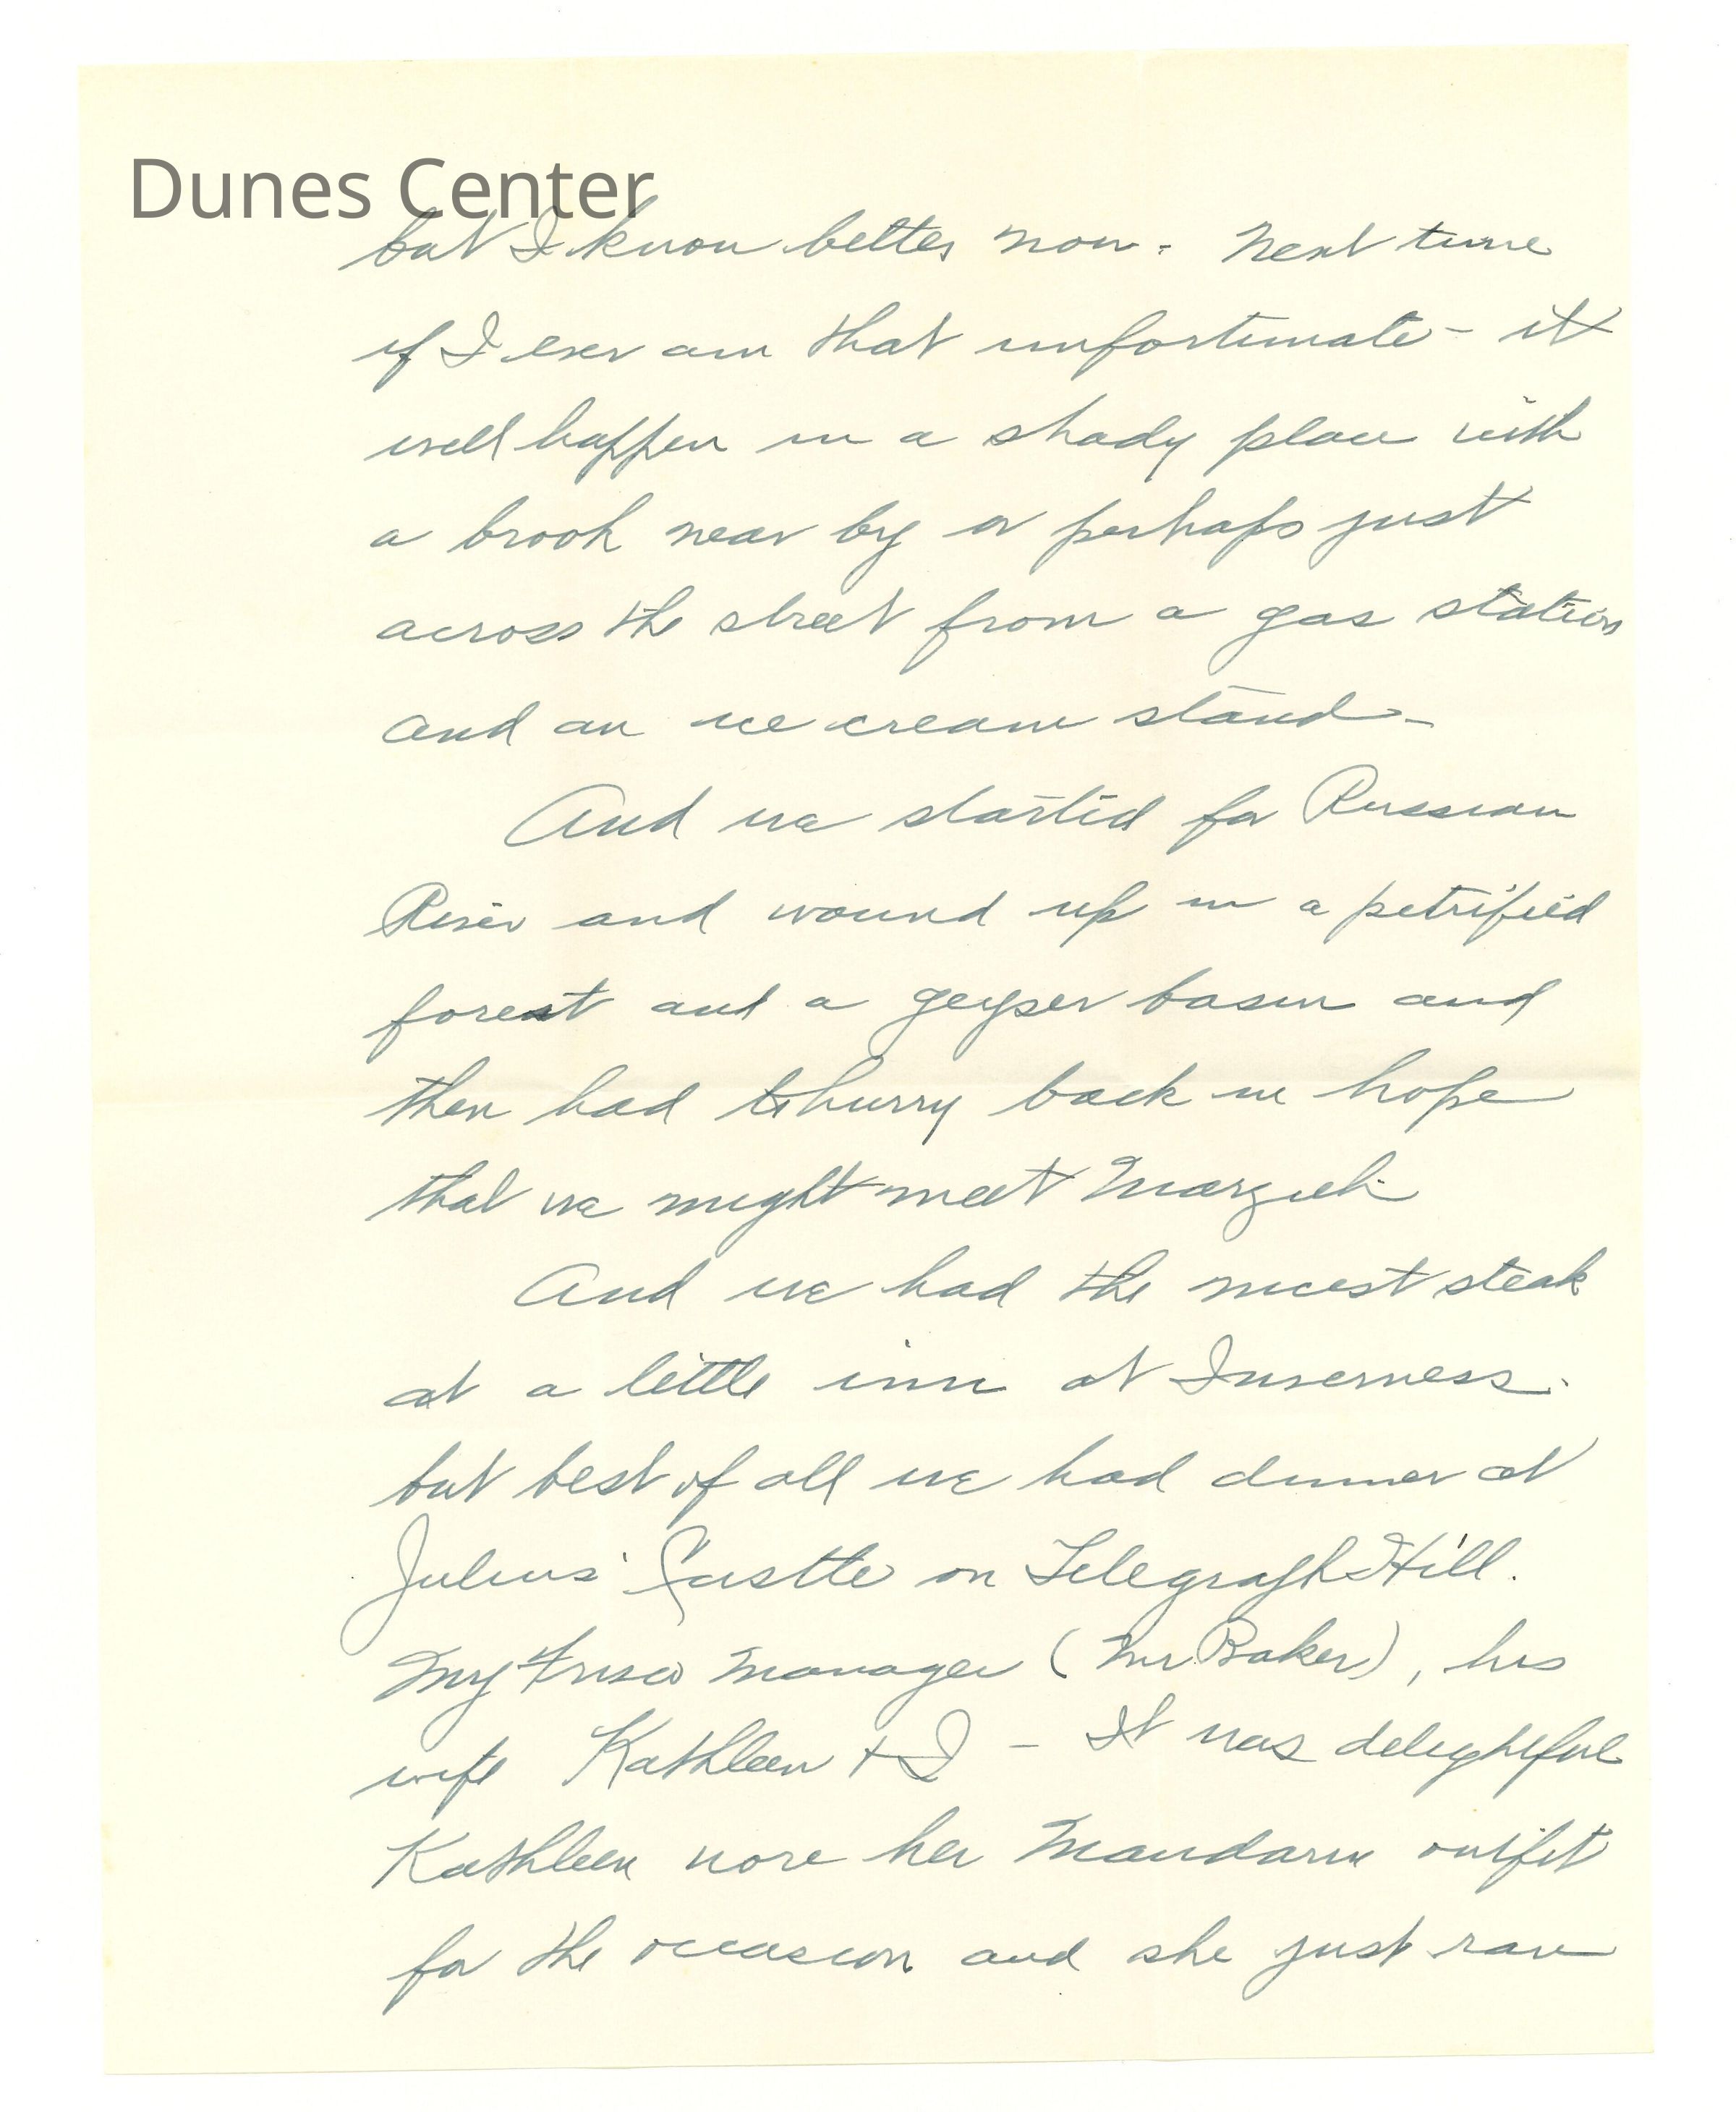 Dunes Center
but I know better now. Next time
if I ever am that unfortunate - it
will happen in a shady place with
a brook near by or perhaps just
across the street from a gas station
and an ice cream stand -
And we started for Russian
River and wound up in a petrified
forest and a geyser basin and
then had to hurry back in hope
that we might meet Marzieh
And we had the nicest steak
at a little inn at Inverness.
but best of all we had dinner at
Julius' Castle on Telegraph Hill.
My Frisco Manager (Mr Baker), his
wife Kathleen + I - It was delightful
Kathleen wore her Mandarin outfit
for the occasion and she just ran